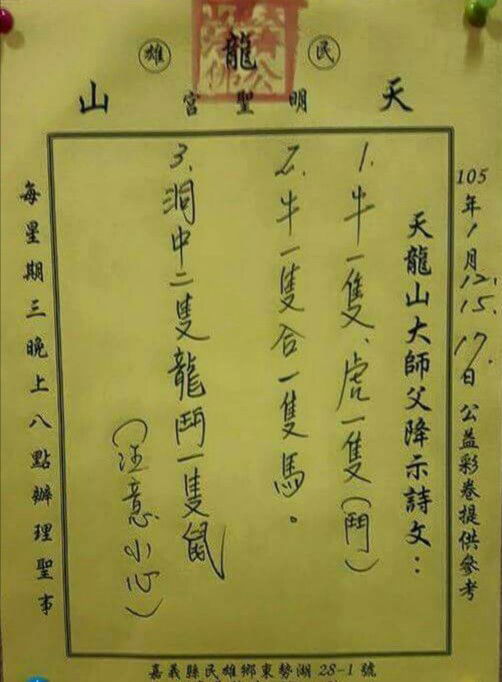 民龍雄
天明聖宮山
105年1月12.15.17.日公益彩卷提供參考
天龍山大師父降示詩文：
1.牛一隻、虎一隻(鬥)
2.牛一隻合一隻馬。
3.洞中二隻龍鬥一隻鼠
(注意小心)
每星期三晚上八點辦理聖事
嘉義縣民雄鄉東勢湖28-1號